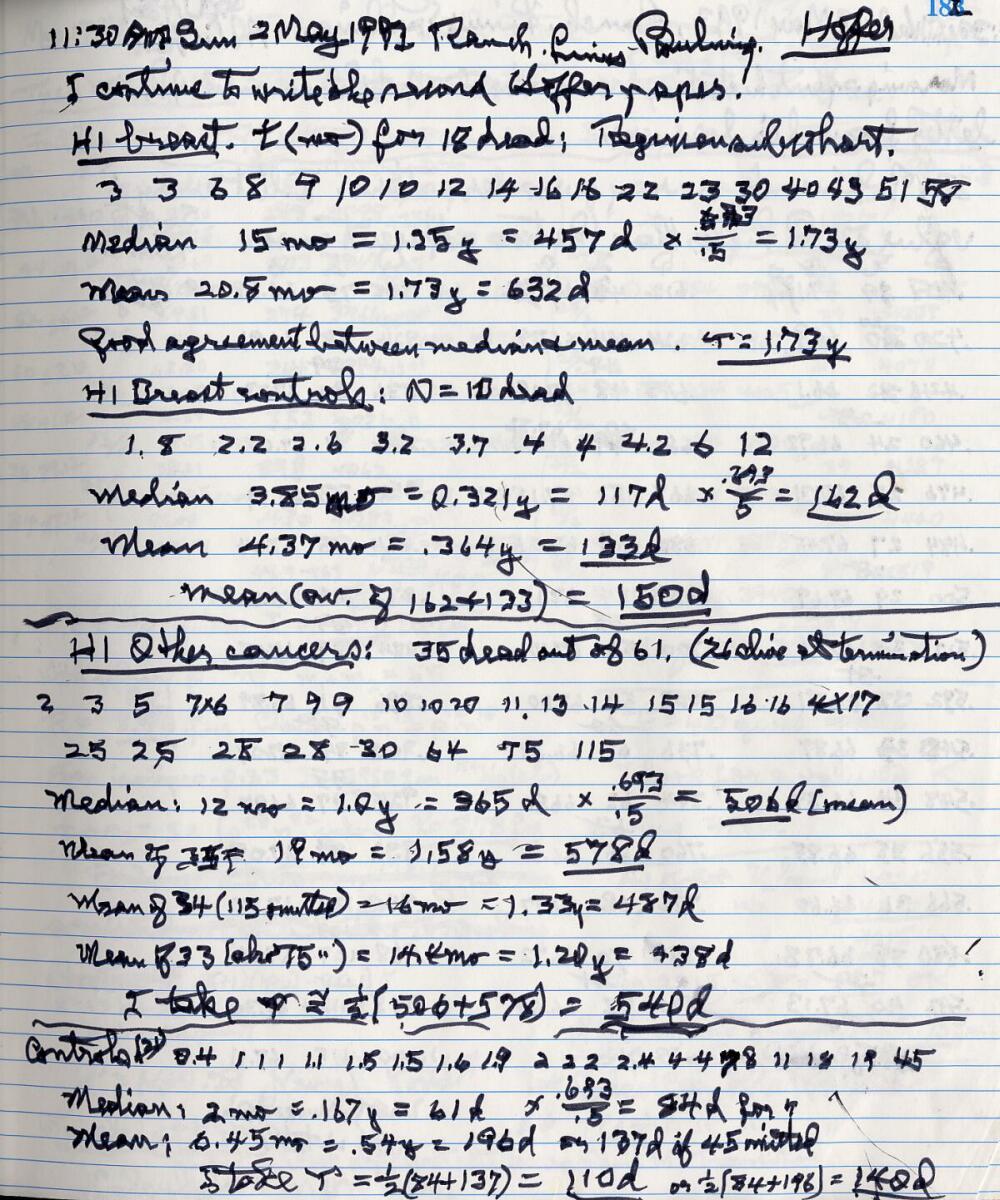 182
11:30 AM Sun 2 May 1992 Ranch. Linus Pauling. Hoffer
I continue to write the second Hoffer paper.
H1 breast. t(mo) for 18 dead;
3 3 6 8 9 10 10 12 14 16 16 22 23 30 40 43 51 58
Median 15 mo = 1.25 y = 457 d × .693/.5 = 1.73 y
Mean 20.8 mo = 1.73 y = 632 d
Good agreement between median & mean. τ = 1.73 y
H1 Breast controls: N = 10 dead
1.8 2.2 2.6 3.2 3.7 4 4 4.2 6 12
Median 3.85 mo = 0.321 y = 117 d × .693/.5 = 162 d
Mean 4.37 mo = .364 y = 133 d
Mean (av. of 162 + 133) = 150 d
H1 Other cancers: 35 dead out of 61. (26 alive at termination)
2 3 5 7×6 7 9 9 10 10 20 11 13 14 15 15 16 16 4×17
25 25 28 28 30 64 75 115
Median: 12 mo = 1.0 y = 365 d × .693/.5 = 506 d [mean)
Mean of 35 = 19 mo = 1.58 y = 578 d
Mean of 34 (115 omitted) = 16 mo = 1.33 y = 487 d
Mean of 33 [also 75 ") = 14.4 mo = 1.20 y = 438 d
I take τ ≅ ½(506 + 578) = 540 d
Controls (21) 0.4 1 1 1 1.1 1.5 1.5 1.6 1.9 2 2 2 2.4 4 4 8 11 18 19 45
Median: 2 mo = .167 y = 61 d × .693/.5 = 84 d for τ
Mean: 6.45 mo = .54 y = 196 d or 137 d if 45 omitted
I take τ = ½(84 + 137) = 110 d or ½(84 + 196) = 140 d